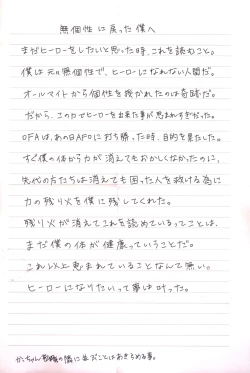 無個性に戻った僕へ
まだヒーローをしたいと思った時、これを読むこと。
僕は元々無個性で、ヒーローになれない人間だ。
オールマイトから個性を授かれたのは奇跡だ。
だから、この力でヒーローを出来た事が恵まれすぎだった。
OFAは、あの日AFOに打ち勝った時、目的を果たした。
すぐ僕の体から力が消えてもおかしくなかったのに、
先代の方たちは消えても困った人を救ける為に
力の残り火を僕に残してくれた。
残り火が消えてこれを読めているってことは、
まだ僕の体が健康っていうことだ。
これ以上恵まれていることなんて無い。
ヒーローになりたいって夢は叶った。
かっちゃんの隣に並ぶことはあきらめる事。